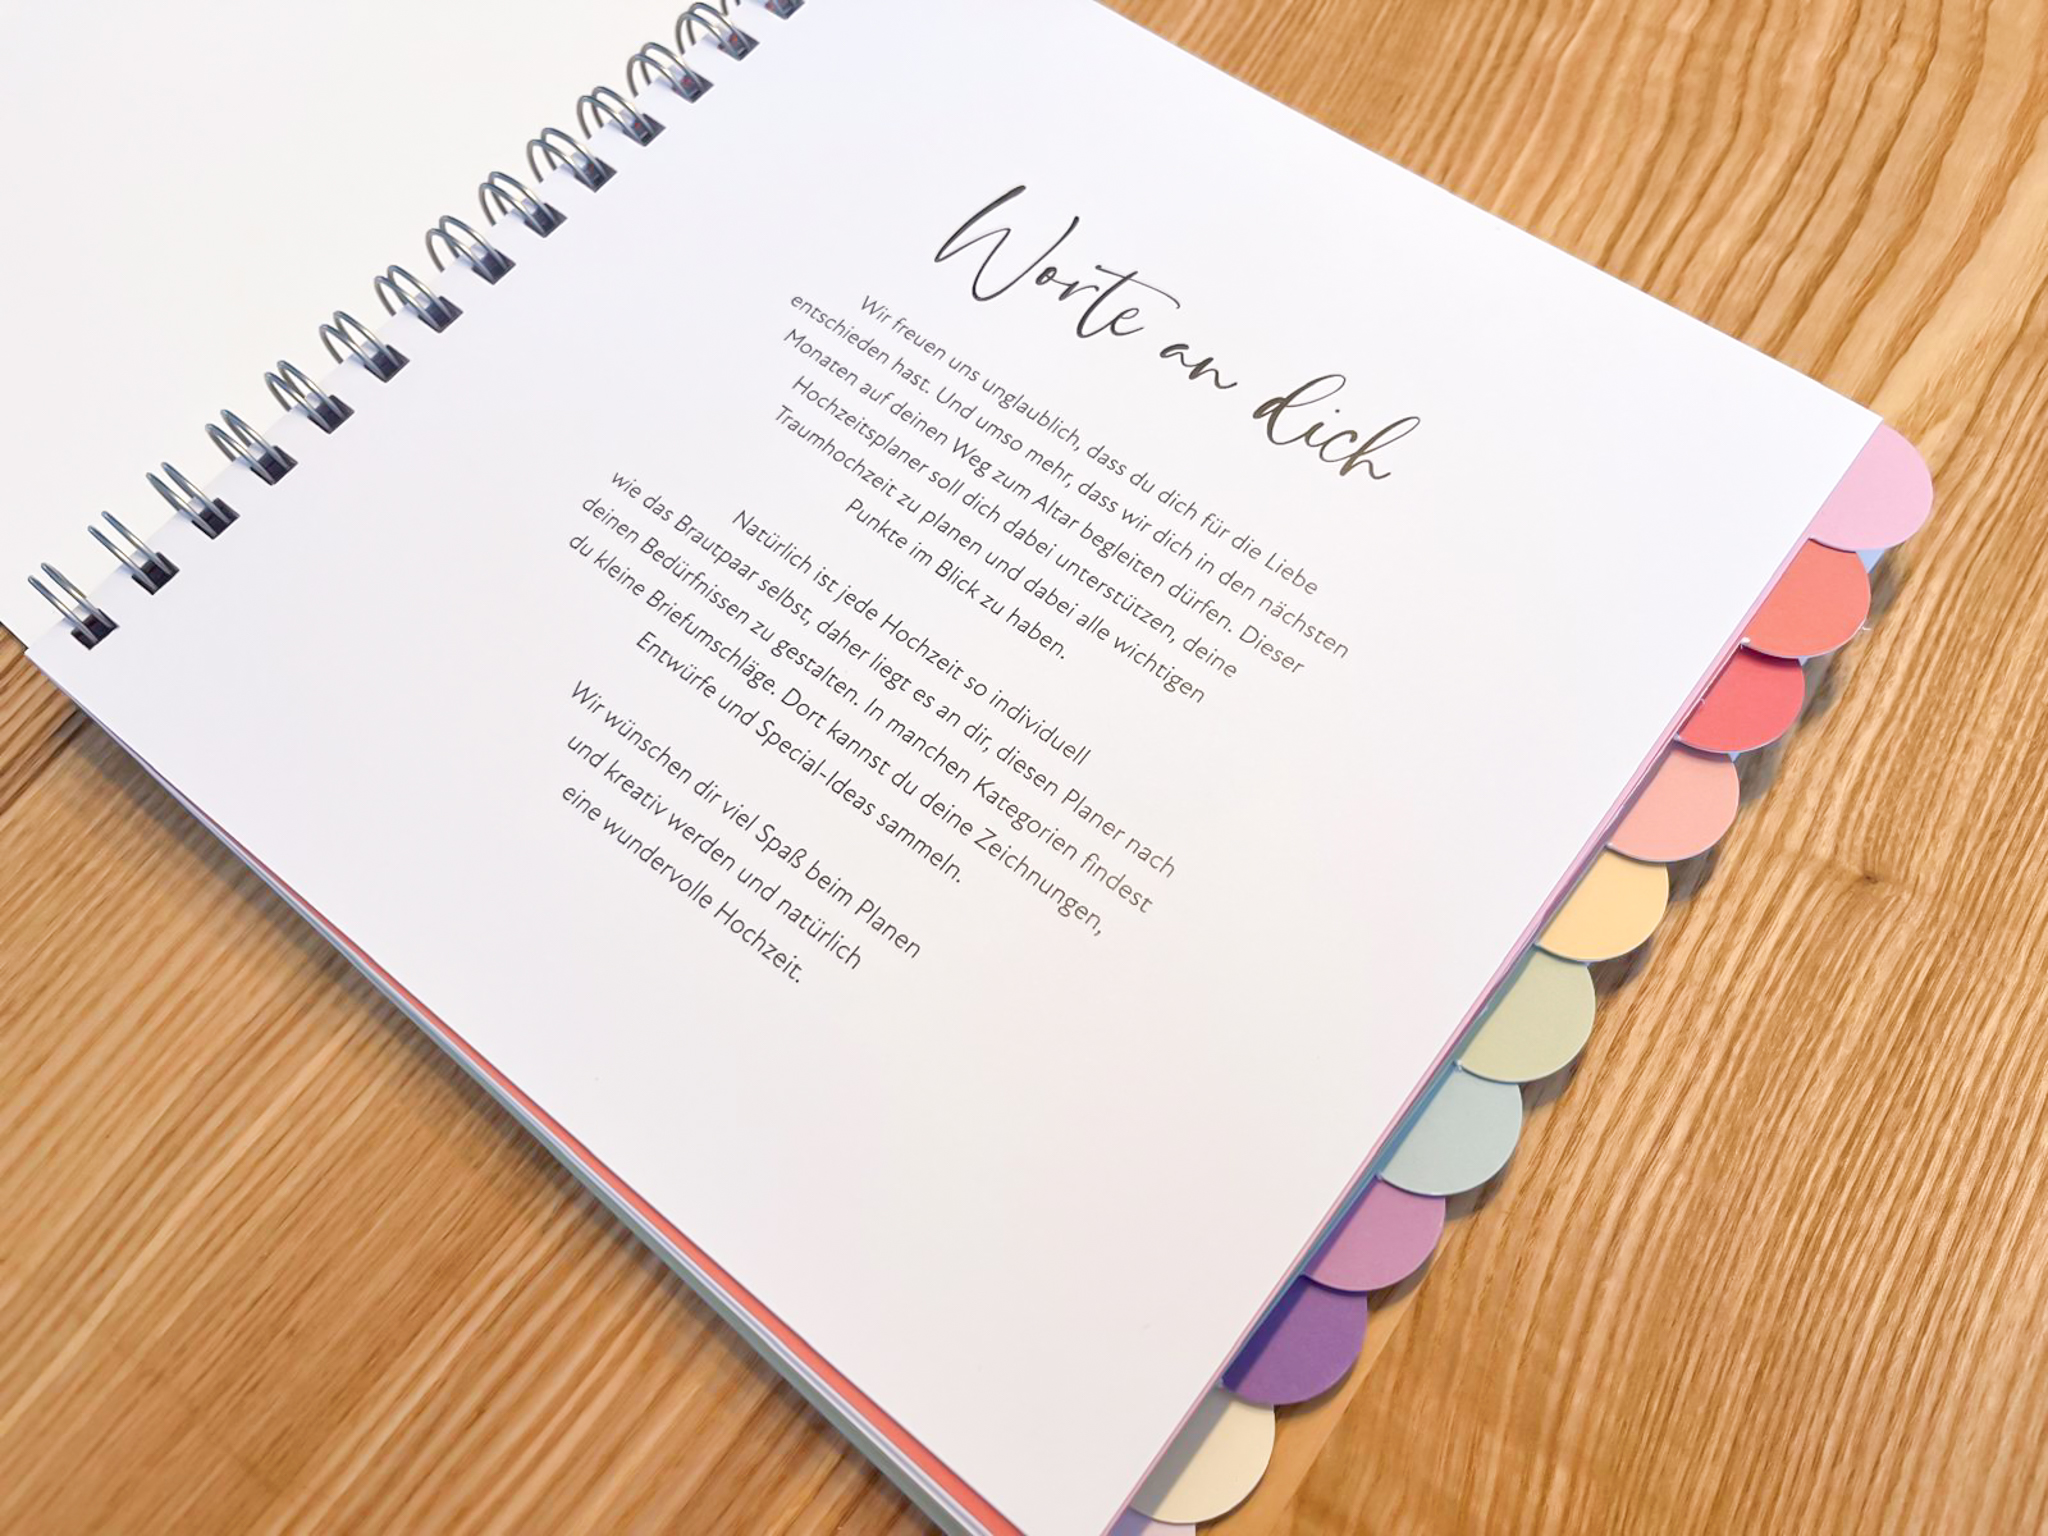 Worte an dich
Wir freuen uns unglaublich, dass du dich für die Liebe
entschieden hast. Und umso mehr, dass wir dich in den nächsten
Monaten auf deinen Weg zum Altar begleiten dürfen. Dieser
Hochzeitsplaner soll dich dabei unterstützen, deine
Traumhochzeit zu planen und dabei alle wichtigen
Punkte im Blick zu haben.
Natürlich ist jede Hochzeit so individuell
wie das Brautpaar selbst, daher liegt es an dir, diesen Planer nach
deinen Bedürfnissen zu gestalten. In manchen Kategorien findest
du kleine Briefumschläge. Dort kannst du deine Zeichnungen,
Entwürfe und Special-Ideas sammeln.
Wir wünschen dir viel Spaß beim Planen
und kreativ werden und natürlich
eine wundervolle Hochzeit.